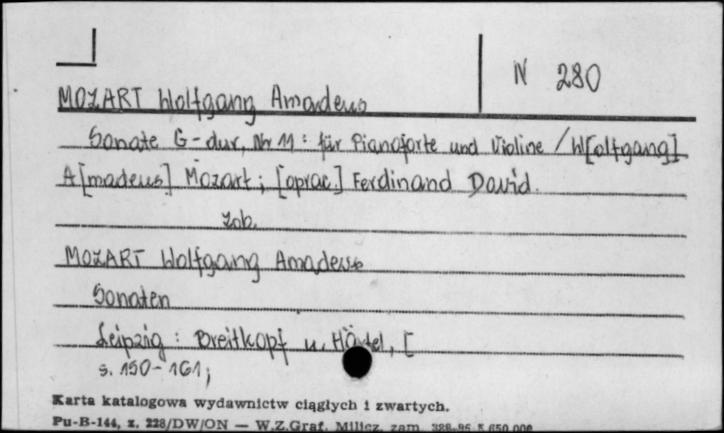 N 280
MOZART Wolfgang Amadeus
Sonate G-dur, Nr 11 : für Pianoforte und Violine / W[olfgang]
A[madeus] Mozart ; [oprac.] Ferdinand David.
zob.
MOZART Wolfgang Amadeus
Sonaten
Leipzig : Breitkopf u. Härtel, [
s. 150-161 ;
Karta katalogowa wydawnictw ciągłych i zwartych.
Pu-B-144, z. 228/DW/ON — W.Z.Graf. Milicz, zam.